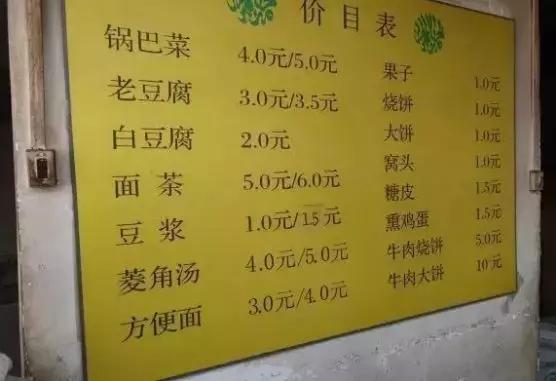 价目表
锅巴菜 4.0元/5.0元
老豆腐 3.0元/3.5元
白豆腐 2.0元
面茶 5.0元/6.0元
豆浆 1.0元/1.5元
菱角汤 4.0元/5.0元
方便面 3.0元/4.0元
果子 1.0元
烧饼 1.0元
大饼 1.0元
窝头 1.0元
糖皮 1.5元
熏鸡蛋 1.5元
牛肉烧饼 5.0元
牛肉大饼 10元